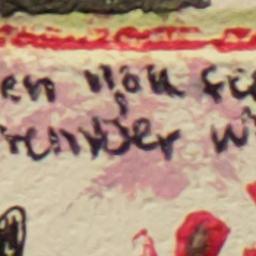 en you fe
member w